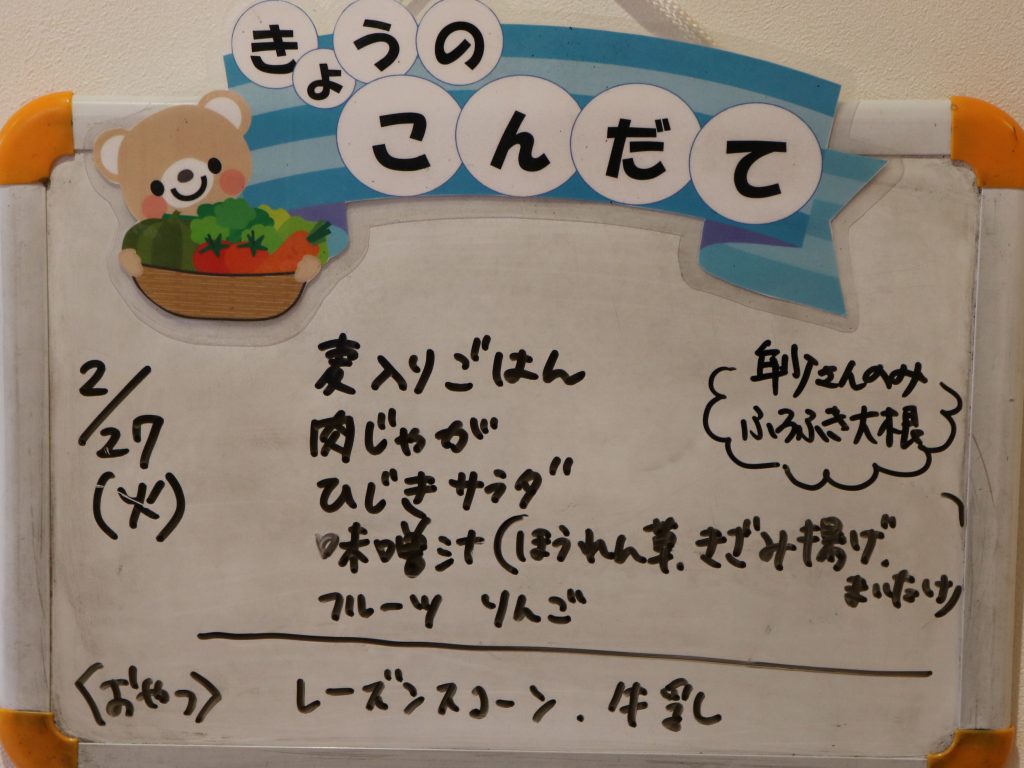 きょうの
こんだて
2/27
(火)
麦入りごはん
肉じゃが
ひじきサラダ
味噌汁(ほうれん草、きざみ揚げ、
まいたけ)
フルーツ りんご
さんのみ
ふろふき大根
〈おやつ〉 レーズンスコーン、牛乳